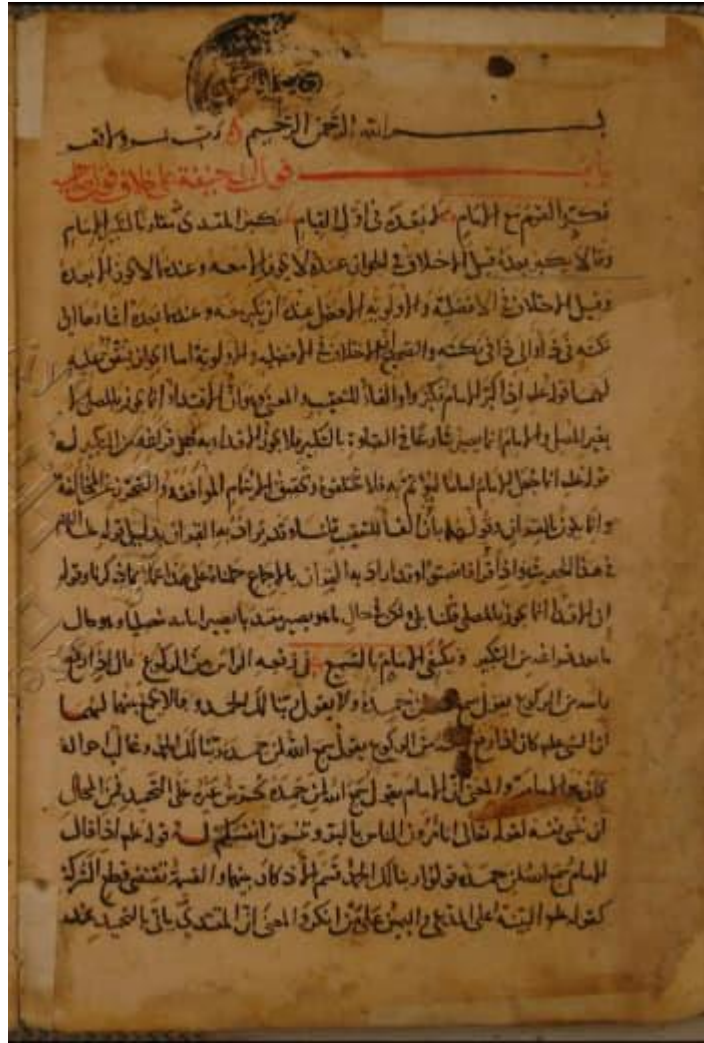 بسم الله الرحمن الرحيم رب يسر
باب قول ابي حنيفة على خلاف قول صاحبيه
مكبر القوم مع الامام لا بعده في اول القيام يكبر المقتدي مقارنا لتكبير الامام
وقالا يكبر بعده قيل الاختلاف في الجواز عنده لا يجوز الا معه وعندهما لا يجوز الا بعده
وقيل الاختلاف في الافضلية والاولوية الافضل عنده ان يكبر معه وعندهما بعده
والصحيح ان الاختلاف في الافضلية والاولوية اما الجواز متفق عليه
لهما قوله عليه اذا كبر الامام فكبروا والفاء للتعقيب والمعنى وهو ان الاقتداء انما يجوز بالمصلي لا
بغير المصلي والامام انما يصير شارعا في الصلوة بالتكبير فلا يجوز الاقتداء به قبل فراغه من التكبير له
قوله عليه انما جعل الامام اماما ليؤتم به فلا تختلفوا وتحقيق الايتمام الموافقة والتحرز عن المخالفة
وانما يجوز بالقران وقولهما بأن الفاء للتعقيب قلنا وقد يراد به القران بدليل قوله عليه السلام
في هذا الحديث واذا قرأ فانصتوا وقد اراد به القران بالاجماع حملناه على هذا عملا بما ذكرنا وقوله
ان الاقتداء انما يجوز بالمصلي قلنا بلى ولكن في حال ما هو يصير مقتديا يصير امامه مصليا وهو حال
ما بعد فراغه من التكبير ويكتفي الامام بالتسميع في رفعه الراس من الركوع قال اذا رفع
راسه من الركوع يقول سمع الله لمن حمده ولا يقول ربنا لك الحمد وقالا يجمع بينهما لهما
ان النبي عليه كان اذا رفع راسه من الركوع يقول سمع الله لمن حمده ربنا لك الحمد وغالب احواله
كان هو الامامة والمعنى ان الامام يقول سمع الله لمن حمده يحرض غيره على التحميد فمن المحال
ان ينسى نفسه لقوله تعالى اتامرون الناس بالبر وتنسون انفسكم له قوله عليه اذا قال
الامام سمع الله لمن حمده قولوا ربنا لك الحمد قسم الاذكار بينهما والقسمة تقتضي قطع الشركة
كقوله عليه البينة على المدعي واليمين على من انكر والمعنى ان المقتدي ياتي بالتحميد عنده